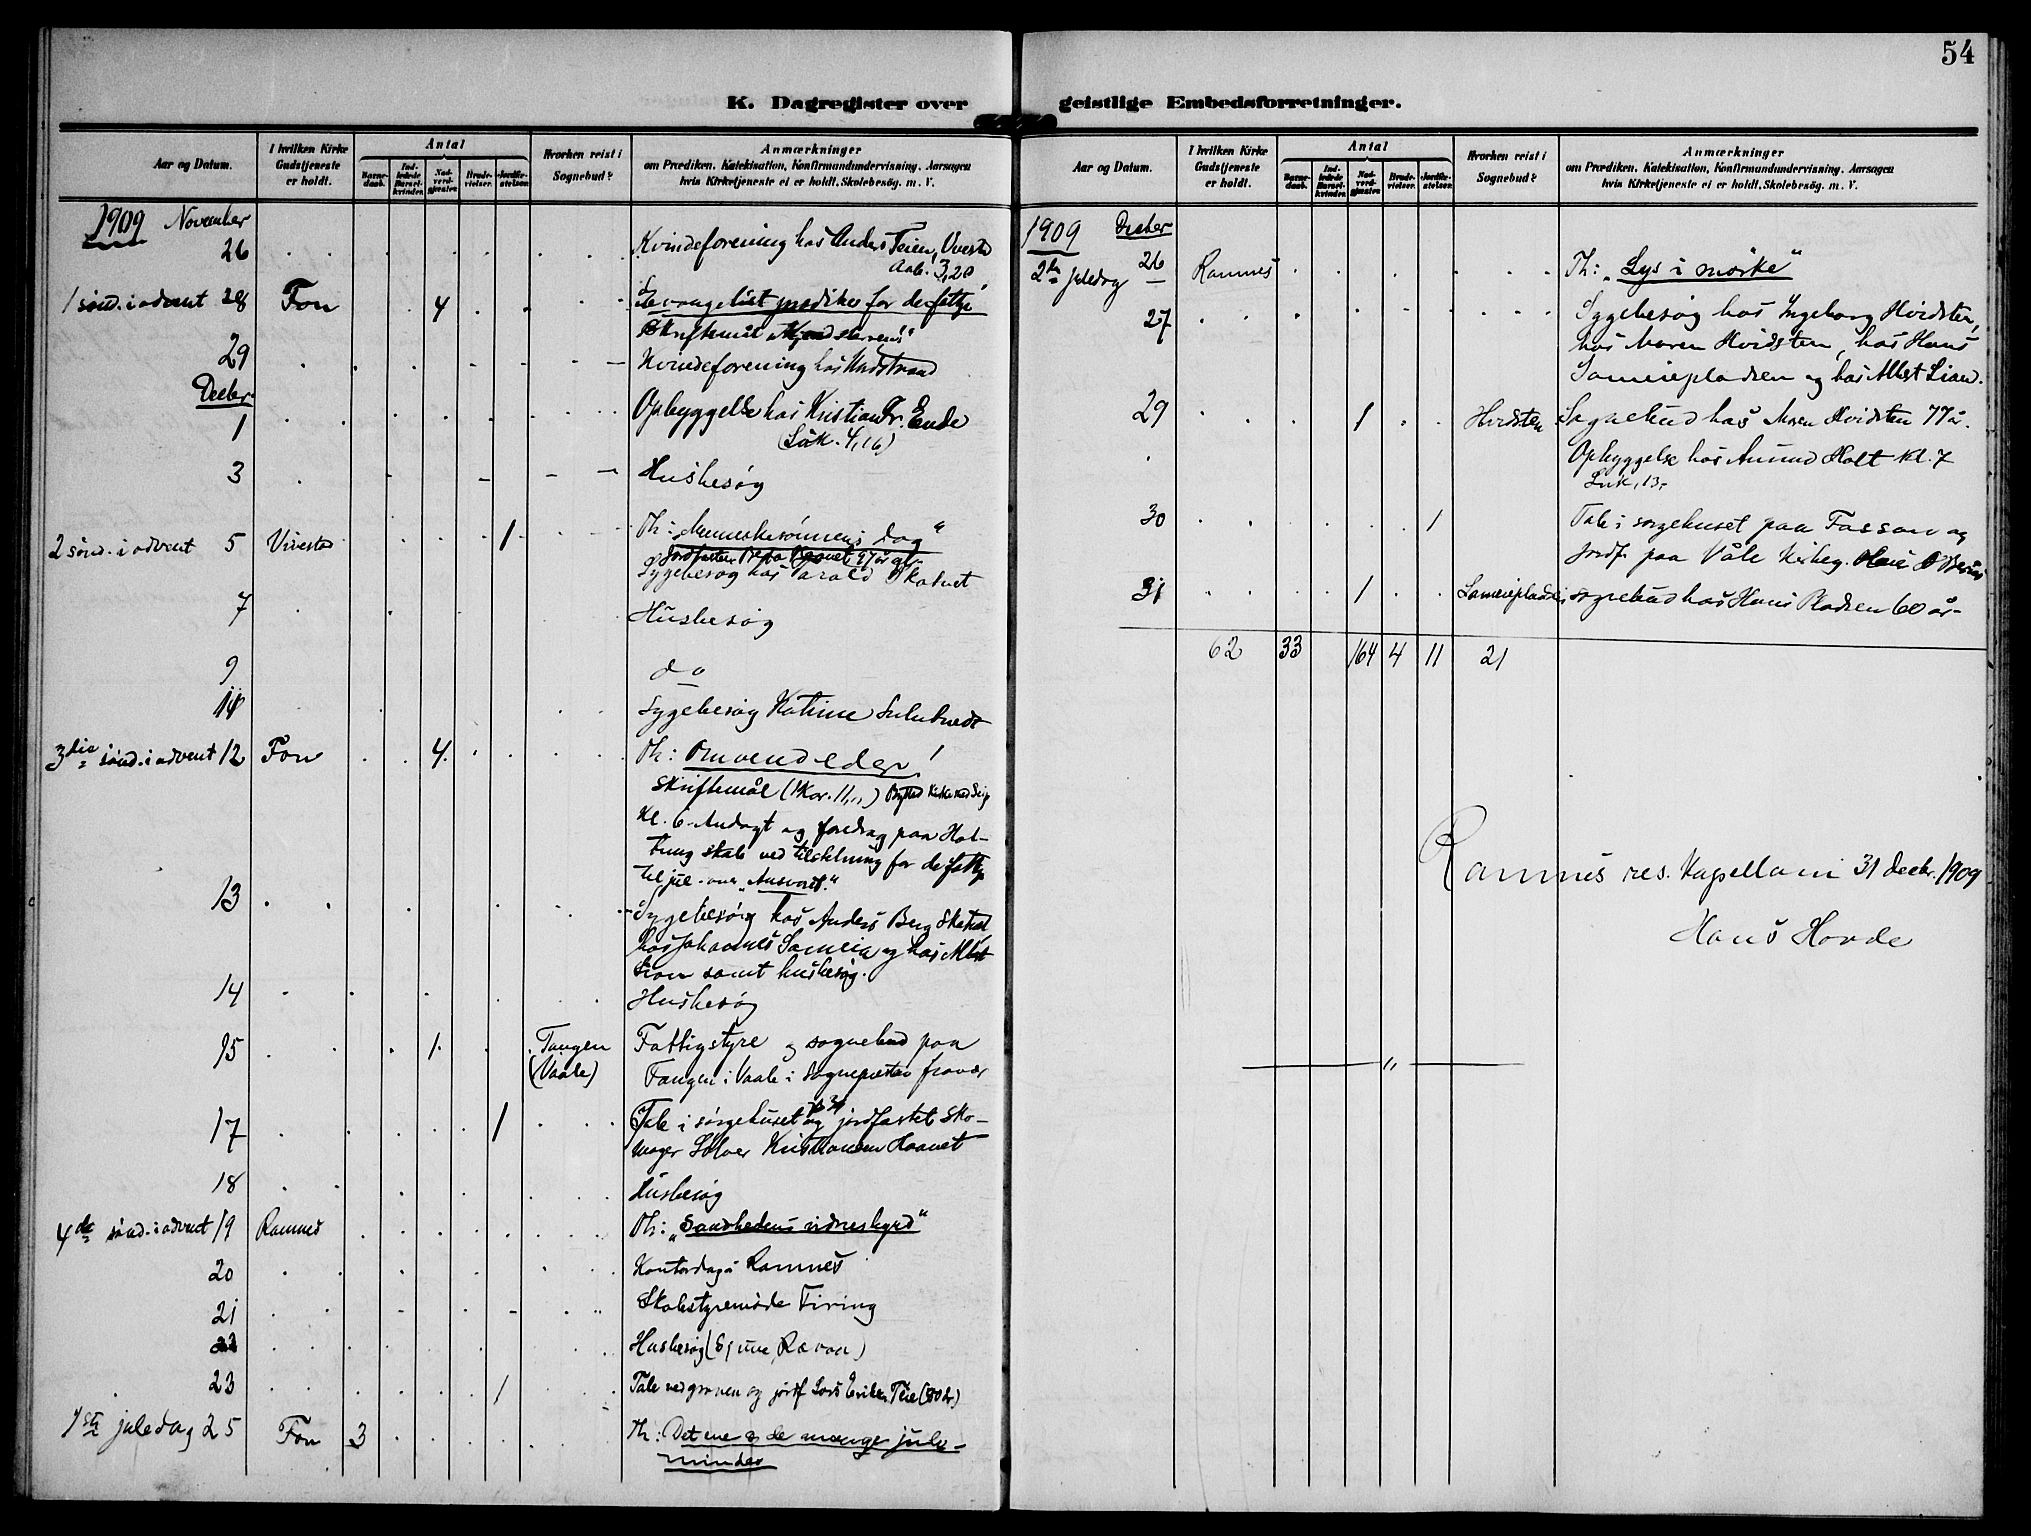 54
K. Dagregister over geistlige Embedsforretninger.
Aar og Datum.
I hvilken Kirke Gudstjeneste er holdt.
Antal
Barnedaab.
Indledede Barselkvinder.
Nadverdgjæster.
Brudevielser.
Jordfæstelser.
Hvorhen reist i Sognebud?
Anmærkninger
om Prædiken. Katekisation, Konfirmandundervisning. Aarsagen
hvis Kirketjeneste ei er holdt. Skolebesøg. m. V.
1909 November
26 Kvindeforening hos Anders Teien, Vivestad
Aab. 3,20
1 sønd. i advent 28 Fon 4 Evangeliet prædikes for de fattige
Skriftemål
29 Kvindeforening hos
Decbr.
1 Opbyggelse hos Kristian Fr. Ende
(Luk. 4,16)
3 Husbesøg
2 sønd. i advent 5 Vivestad 1 Th: "Menneskesønnens dag"
Sygebesøg hos
7 Husbesøg
9 do
11 Sygebesøg Katrine
3die sønd. i advent 12 Fon 4 Th: Omvend eder!
Skriftemål (1 Kor. 11,
Kl. 6 Andagt og foredrag paa Hol-
tung skole ved tilstelning for de fattige
til jul - om "Ansvaret."
13 Sygebesøg hos Anders Berg
hos Johannes Sameia og hos Albert
Lian samt husbesøg.
14 Husbesøg
15 1 Tangen (Vaale) Fattigstyre og sognebud paa
Tangen i Vaale i Sogneprestens fravær
17 1 Tale i sørgehuset og jordfæstet sko-
mager Sølver Kristiansen Haavet
18 Husbesøg
4de sønd. i advent 19 Ramnes Th: "Sandhedens vidnesbyrd"
20 Kontordag i Ramnes
21 Skolestyremøde Firing
22 Husbesøg
23 1 Tale ved graven og jordf. Lars Eriksen Teie (80 år)
1ste juledag 25 Fon 3 Th: Det ene og de mange jule-
minder
Aar og Datum.
I hvilken Kirke Gudstjeneste er holdt.
Antal
Barnedaab.
Indledede Barselkvinder.
Nadverdgjæster.
Brudevielser.
Jordfæstelser.
Hvorhen reist i Sognebud?
Anmærkninger
om Prædiken. Katekisation, Konfirmandundervisning. Aarsagen
hvis Kirketjeneste ei er holdt. Skolebesøg. m. V.
1909 Decber
2den juledag 26 Ramnes Th: "Lys i mørke"
27 Sygebesøg hos Ingeborg Hvidsten,
hos Maren Hvidsten, hos Hans
Sameiepladsen og hos Albert Lian.
29 1 Hvidsten Sognebud hos Maren Hvidsten 77 år.
Opbyggelse hos Amund Holt kl. 7
Luk, 13,
30 1 Tale i sørgehuset paa Fossan og
jordf. paa Våle Kirkeg. Hans
31 1 Sameiepladsen Sognebud hos Hans Pladsen 60 år
62 33 164 4 11 21
Ramnes res. Kapellani 31 decbr. 1909
Hans Hovde